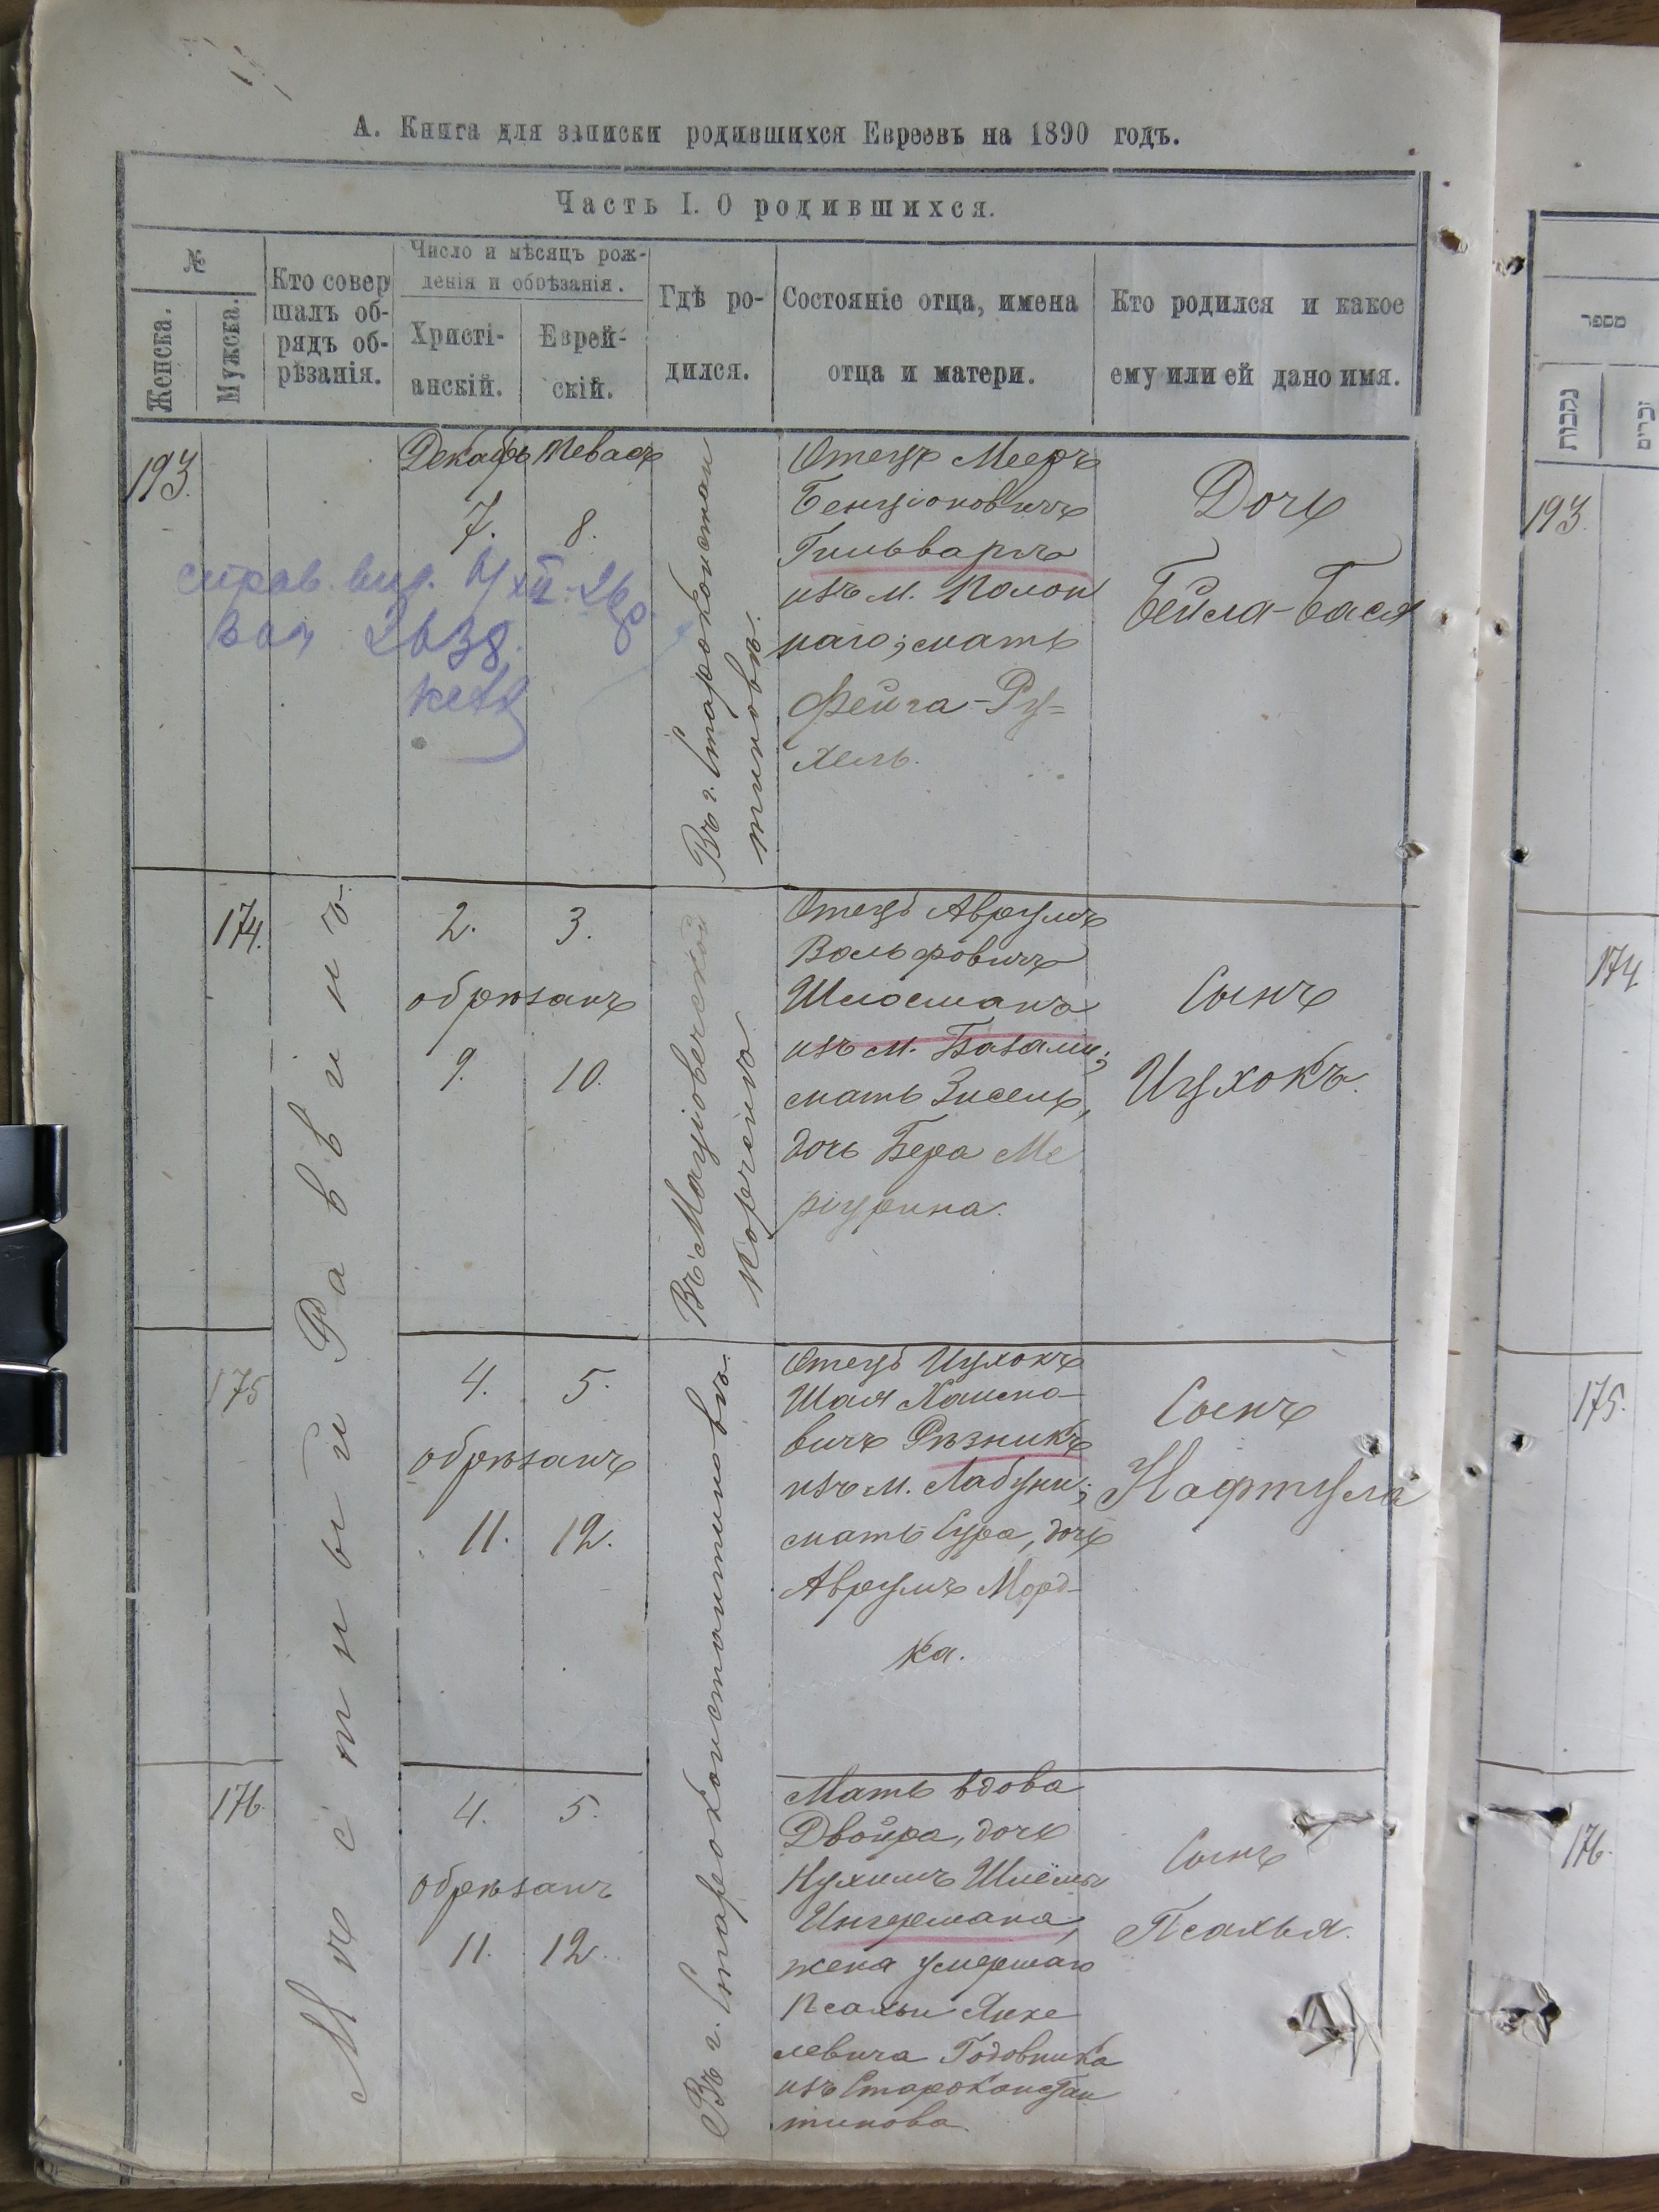 А. Книга для записки родившихся Евреевъ на 1890 годъ.
Часть I. О родившихся.
№
Женска.
Мужска.
Кто совер
шалъ об-
рядъ об-
рѣзанія.
Число и мѣсяцъ рож-
денія и обрѣзанія.
Христі-
анскій.
Еврей-
скій.
Гдѣ ро-
дился.
Состояніе отца, имена
отца и матери.
Кто родился и какое
ему или ей дано имя.
193.
Декабрь
7.
8.
Въ г. Староконстан
тиновѣ.
Отецъ Мееръ
Бенціоновичъ
Гильваргъ
изъ м. Полон
наго; мать
Фейга-Ру=
хель.
Дочь
Бейла-Бася
справ. выд.
2638.
Мѣстный Раввинъ.
174.
2. 3.
обрѣзанъ
9. 10.
Отецъ Аврумъ
Вольфовичъ
Шлосманъ
изъ м. Базаліи;
мать Зисель,
дочь Бера Ме
Сынъ
Ицхокъ.
175
4. 5.
обрѣзанъ
11. 12.
Въ г. Староконстантиновѣ.
Отецъ Ицхокъ
Шая Хаимо-
вичъ Рѣзникъ
изъ м. Лабуни;
мать Сура, дочь
Аврумъ Морд-
ка.
Сынъ
Нафтула
176.
4. 5.
обрѣзанъ
11. 12.
Мать вдова
Двойра, дочь
Нухимъ Шлёмы
Ингермана,
жена умершаго
Псахьи Янке
левича Годовника
изъ Староконстан
тинова.
Сынъ
Псахья.
מספר
נקבות
זכרים
193.
174
175.
176.